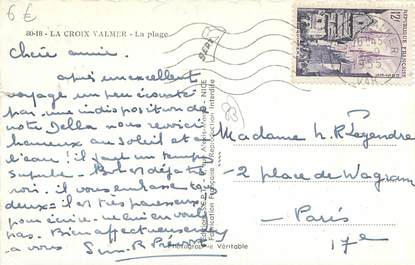 6 €
80-18 - LA CROIX VALMER - La plage
Chère amie.
après un excellent
voyage un peu écourté
par une indisposition de
notre Della nous revoici
heureux au soleil et à
l'eau! il fait un temps
superbe.
il vous embrasse
deux = il est très paresseux
pour écrire ne lui en voulez
pas. Bien affectueusement
à vous
12
83
Madame
2 place de Wagram
Paris
17e
Photographie Véritable
Fabrication Française - Reproduction Interdite